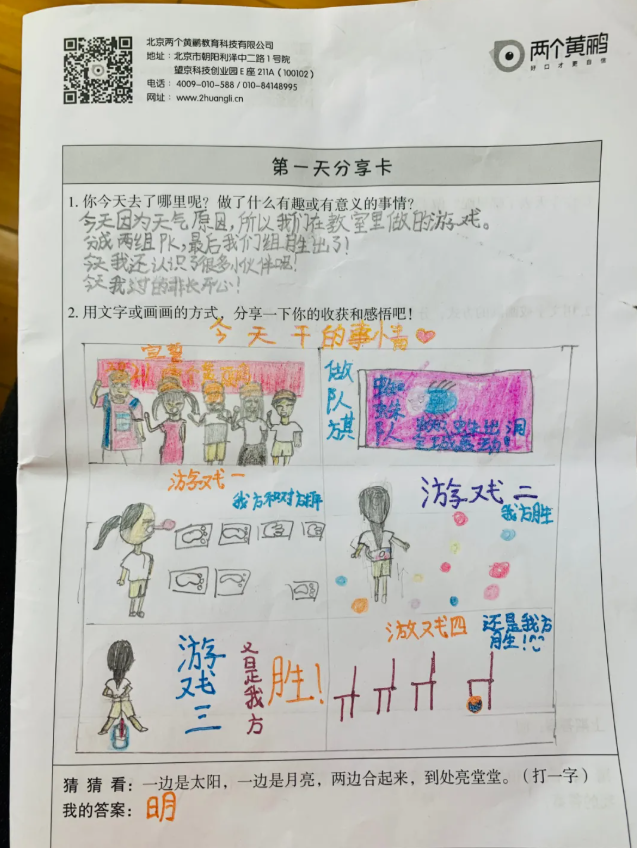 北京两个黄鹂教育科技有限公司
地址：北京市朝阳利泽中二路1号院
望京科技创业园E座211A（100102）
电话：4009-010-588 / 010-84148995
网址：www.2huangli.cn
两个黄鹂
好口才更自信
第一天分享卡
1. 你今天去了哪里呢？做了什么有趣或有意义的事情？
今天因为天气原因，所以我们在教室里做的游戏。
分成两组队，最后我们组胜出了！
今天我还认识了很多小伙伴呢！
今天我过的非常开心！
2. 用文字或画画的方式，分享一下你的收获和感悟吧！
今天干的事情
做队旗
队
游戏一
我方和对方平
游戏二
我方胜
游戏三
又是我方
胜！
游戏四
还是我方胜！
猜猜看：一边是太阳，一边是月亮，两边合起来，到处亮堂堂。（打一字）
我的答案：明